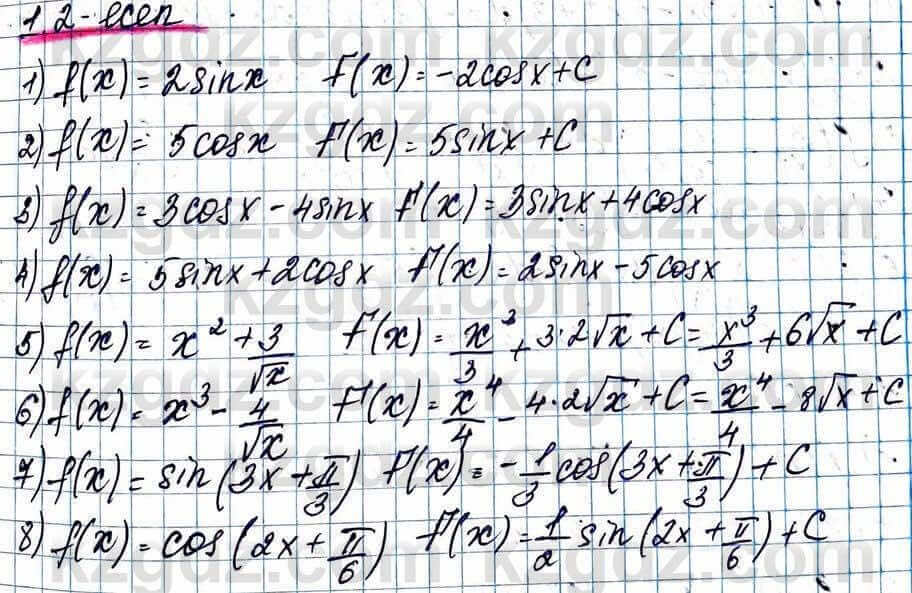 1.2-есеп
1) f(x) = 2sinx F(x) = -2cosx + C
2) f(x) = 5cosx F(x) = 5sinx + C
3) f(x) = 3cosx - 4sinx F(x) = 3sinx + 4cosx
4) f(x) = 5sinx + 2cosx F(x) = 2sinx - 5cosx
5) f(x) = x² + 3/√x F(x) = x³/3 + 3·2√x + C = x³/3 + 6√x + C
6) f(x) = x³ - 4/√x F(x) = x⁴/4 - 4·2√x + C = x⁴/4 - 8√x + C
7) f(x) = sin(3x + π/3) F(x) = -1/3 cos(3x + π/3) + C
8) f(x) = cos(2x + π/6) F(x) = 1/2 sin(2x + π/6) + C
kzgdz.com